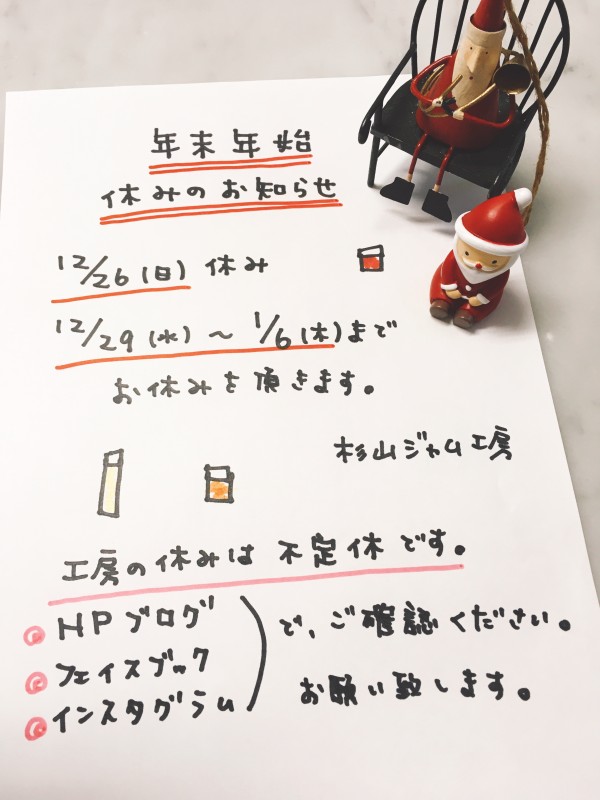 年末年始
休みのお知らせ
12/26(日) 休み
12/29(水)～1/6(木)まで
お休みを頂きます。
杉山ジャム工房
工房の休みは不定休です。
HPブログ
フェイスブック
インスタグラム
で、ご確認ください。
お願い致します。